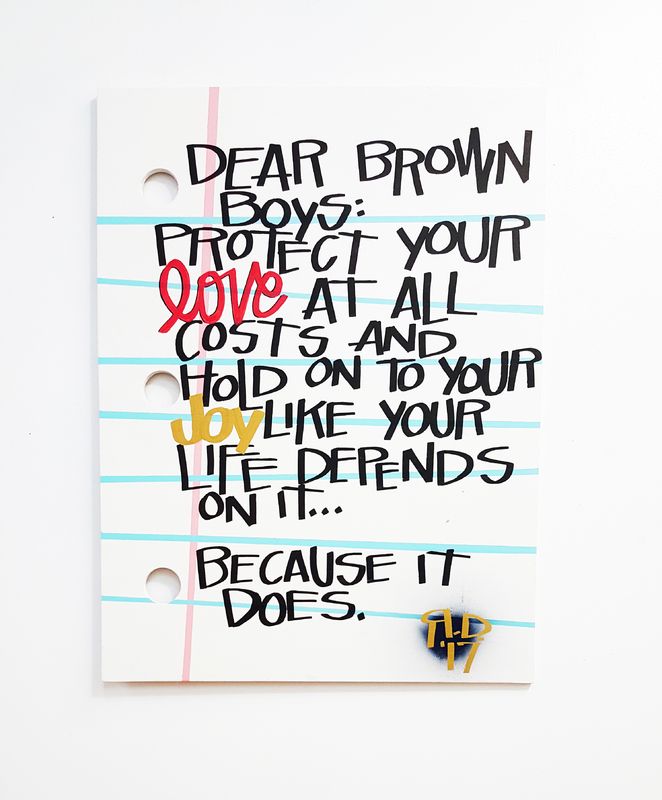 DEAR BROWN
BOYS:
PROTECT YOUR
love AT ALL
COSTS AND
HOLD ON TO YOUR
Joy LIKE YOUR
LIFE DEPENDS
ON IT...
BECAUSE IT
DOES.
'17